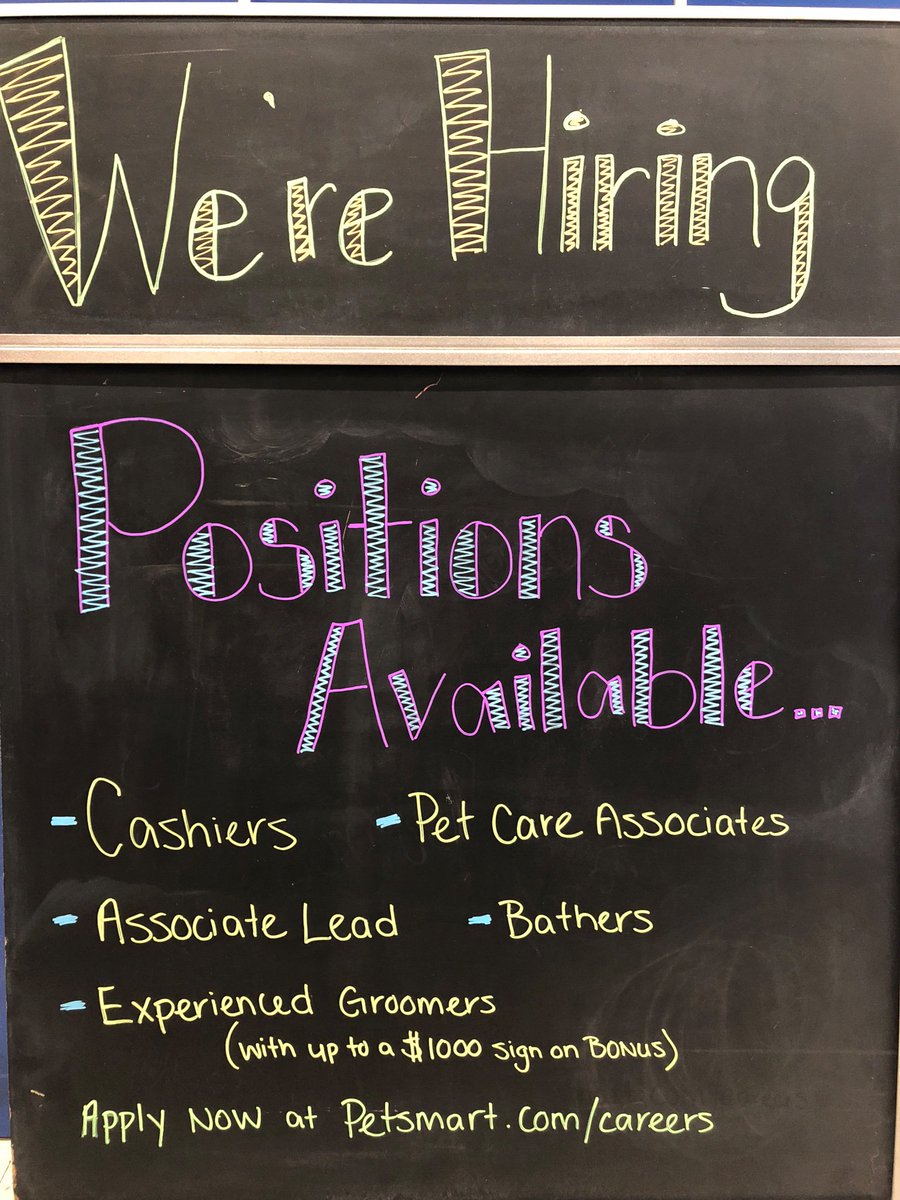 We're Hiring
Positions
Available...
- Cashiers - Pet Care Associates
- Associate Lead - Bathers
- Experienced Groomers
(with up to a $1000 sign on Bonus)
Apply Now at Petsmart.com/careers